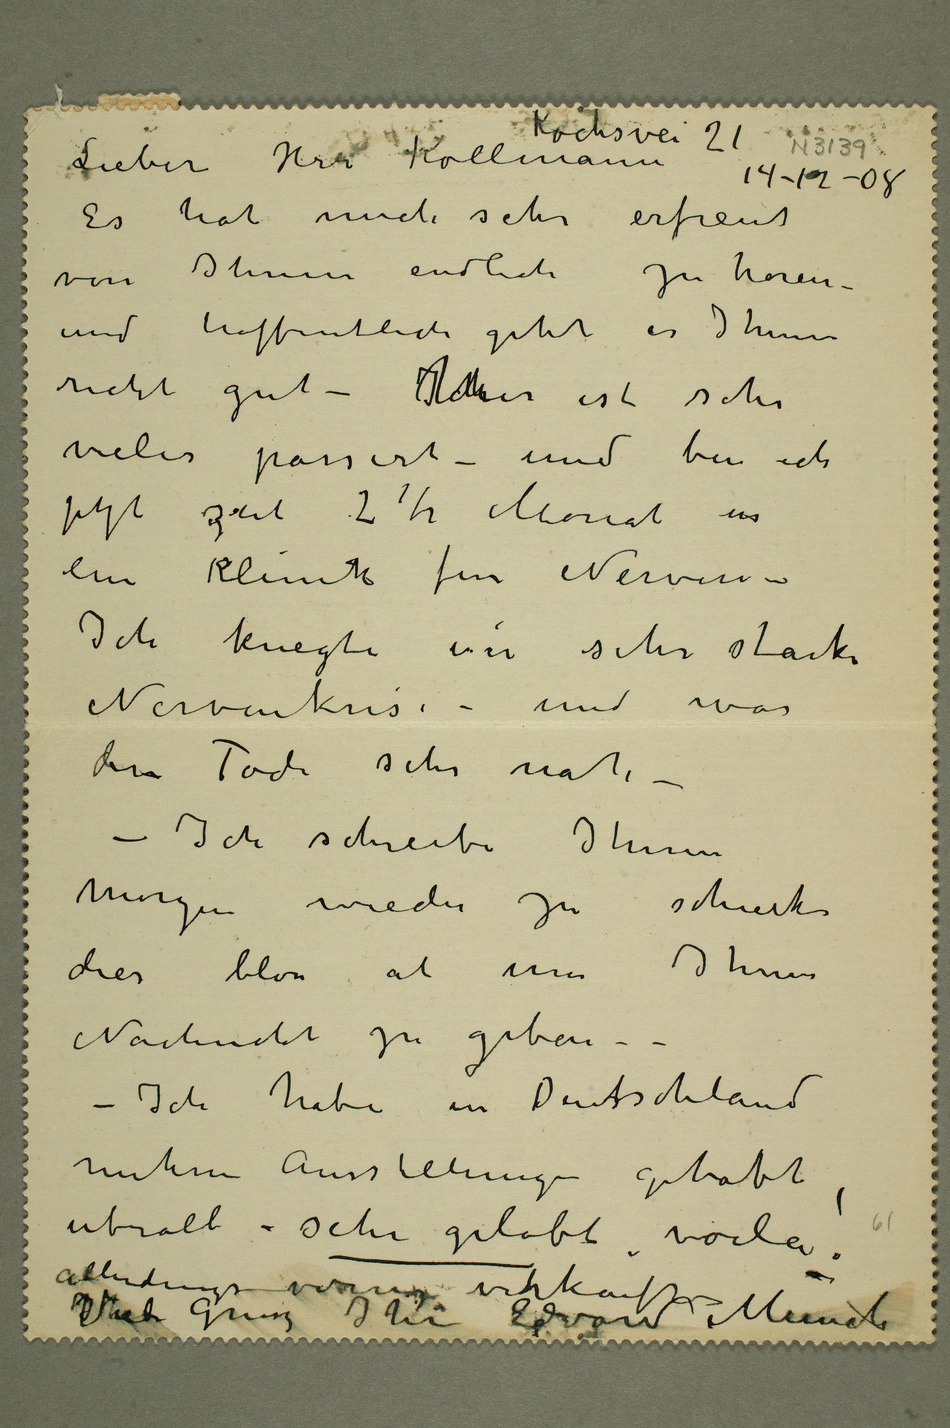 Kochsvei 21
N3139
14-12-08
Lieber Herr Kollmann
Es hat mich sehr erfreut
von Ihnen endlich zu horen -
und hoffentlich geht es Ihnen
recht gut - Hier ist sehr
vieles passirt - und bin ich
jetzt zeit 2 1/2 Monat in
ein Klinik für Nerven -
Ich kriegte ein sehr starke
Nervenkrise - und war
den Tode sehr nah -
- Ich schreibe Ihnen
Morgen wieder zu
dies blos at um Ihnen
Nachricht zu geben - -
- Ich habe in Deutschland
mehren Ausstellungen gehabt,
uberall - sehr gelobt, voila!
allerdings wenig verkauft -
Grusz Ihr Edvard Munch
61